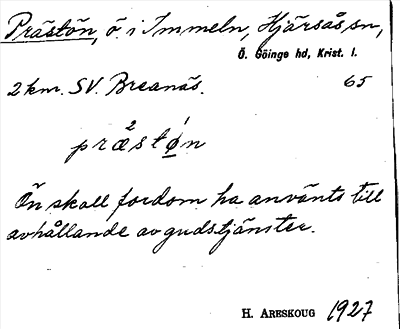 Prästön, ö i Immeln, Hjärsås sn,
Ö. Göinge hd, Krist. l.
2 km. SV. Breanäs. 65
præ²stǿn
Ön skall fordom ha använts till
avhållande av gudstjänster.
H. ARESKOUG 1927